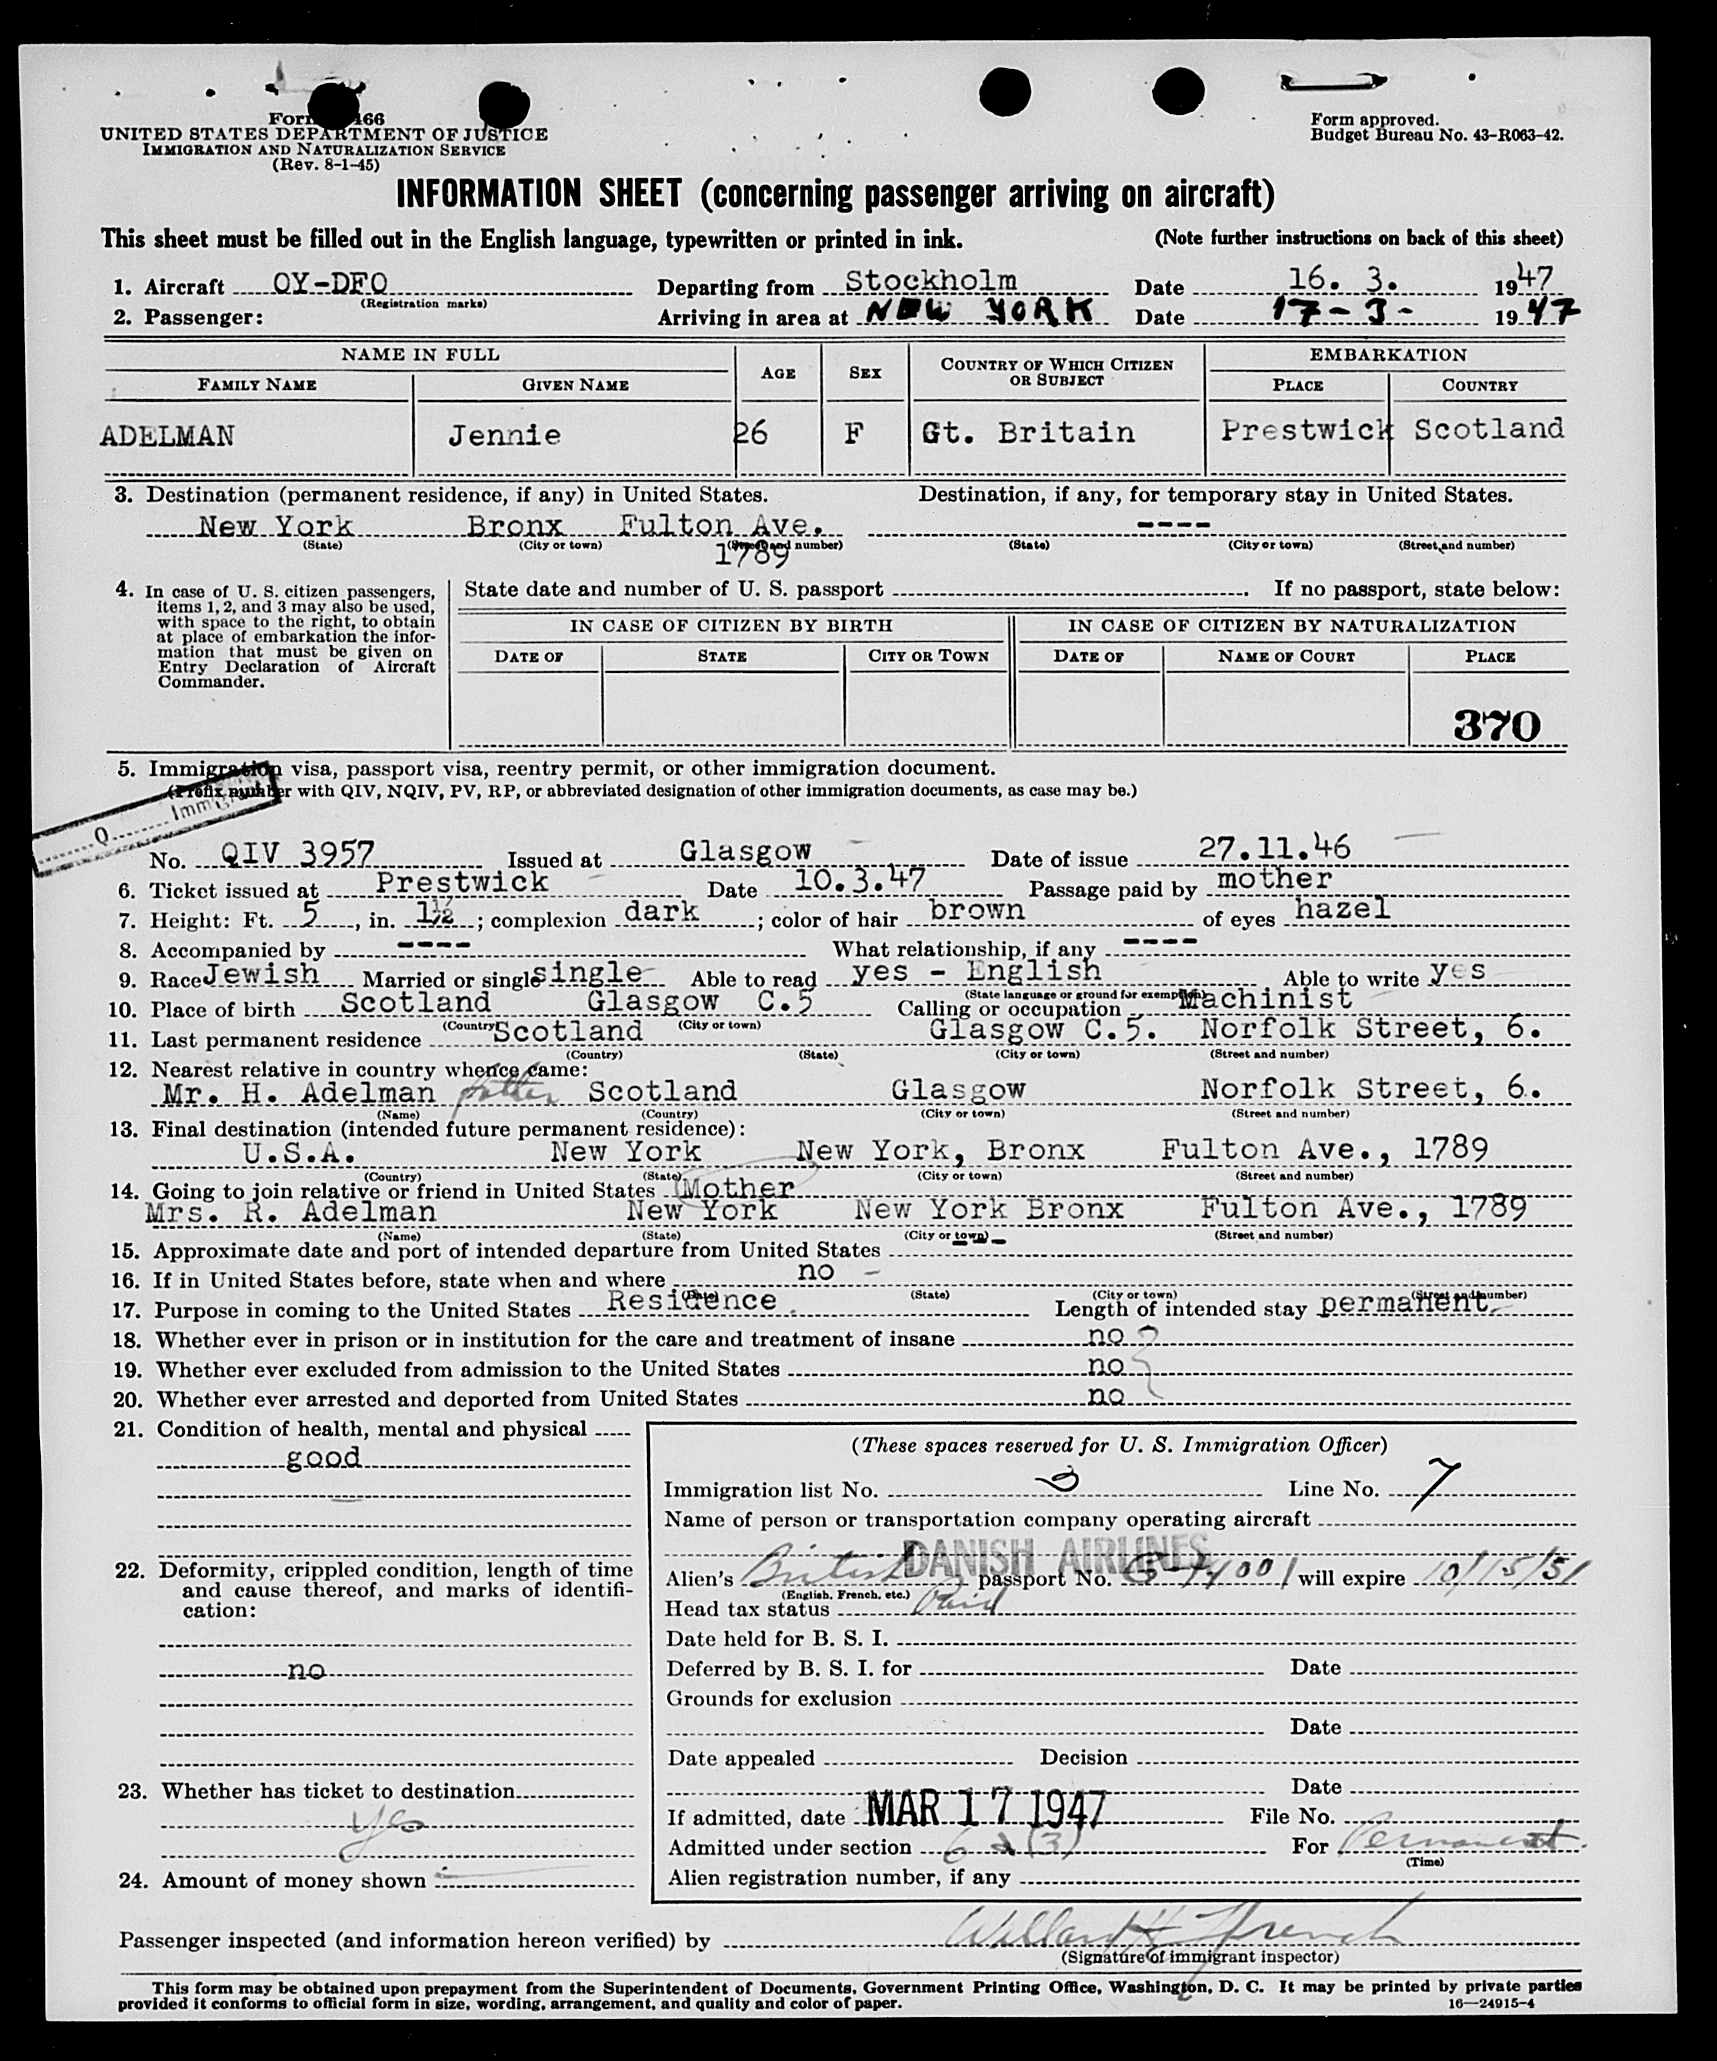 Form 466
UNITED STATES DEPARTMENT OF JUSTICE
IMMIGRATION AND NATURALIZATION SERVICE
(Rev. 8-1-45)
Form approved.
Budget Bureau No. 43-R063-42.
INFORMATION SHEET (concerning passenger arriving on aircraft)
This sheet must be filled out in the English language, typewritten or printed in ink. (Note further instructions on back of this sheet)
1. Aircraft OY-DFO Departing from Stockholm Date 16. 3. 1947
(Registration marks)
2. Passenger: Arriving in area at NEW YORK Date 17-3- 1947
NAME IN FULL AGE SEX COUNTRY OF WHICH CITIZEN OR SUBJECT EMBARKATION
FAMILY NAME GIVEN NAME PLACE COUNTRY
ADELMAN Jennie 26 F Gt. Britain Prestwick Scotland
3. Destination (permanent residence, if any) in United States. Destination, if any, for temporary stay in United States.
New York Bronx Fulton Ave. ----
(State) (City or town) (Street and number) (State) (City or town) (Street and number)
1789
4. In case of U. S. citizen passengers, items 1, 2, and 3 may also be used, with space to the right, to obtain at place of embarkation the information that must be given on Entry Declaration of Aircraft Commander.
State date and number of U. S. passport . If no passport, state below:
IN CASE OF CITIZEN BY BIRTH IN CASE OF CITIZEN BY NATURALIZATION
DATE OF STATE CITY OR TOWN DATE OF NAME OF COURT PLACE
370
5. Immigration visa, passport visa, reentry permit, or other immigration document.
(Prefix number with QIV, NQIV, PV, RP, or abbreviated designation of other immigration documents, as case may be.)
Q Immigrant
No. QIV 3957 Issued at Glasgow Date of issue 27.11.46
6. Ticket issued at Prestwick Date 10.3.47 Passage paid by mother
7. Height: Ft. 5, in. 1½; complexion dark; color of hair brown of eyes hazel
8. Accompanied by ---- What relationship, if any ----
9. Race Jewish Married or single single Able to read yes - English Able to write yes
(State language or ground for exemption)
10. Place of birth Scotland Glasgow C.5 Calling or occupation Machinist
(Country) (City or town)
11. Last permanent residence Scotland Glasgow C.5. Norfolk Street, 6.
(Country) (State) (City or town) (Street and number)
12. Nearest relative in country whence came:
Mr. H. Adelman father Scotland Glasgow Norfolk Street, 6.
(Name) (Country) (City or town) (Street and number)
13. Final destination (intended future permanent residence):
U.S.A. New York New York, Bronx Fulton Ave., 1789
(Country) (State) (City or town) (Street and number)
14. Going to join relative or friend in United States Mother
Mrs. R. Adelman New York New York Bronx Fulton Ave., 1789
(Name) (State) (City or town) (Street and number)
15. Approximate date and port of intended departure from United States ---
16. If in United States before, state when and where no -
(Date) (State) (City or town) (Street and number)
17. Purpose in coming to the United States Residence. Length of intended stay permanent.
18. Whether ever in prison or in institution for the care and treatment of insane no
19. Whether ever excluded from admission to the United States no
20. Whether ever arrested and deported from United States no
21. Condition of health, mental and physical
good
22. Deformity, crippled condition, length of time and cause thereof, and marks of identification:
no
23. Whether has ticket to destination
yes
24. Amount of money shown
(These spaces reserved for U. S. Immigration Officer)
Immigration list No. 3 Line No. 7
Name of person or transportation company operating aircraft
DANISH AIRLINES
Alien's British passport No. will expire 10/15/51
(English, French, etc.)
Head tax status Paid
Date held for B. S. I.
Deferred by B. S. I. for Date
Grounds for exclusion
Date
Date appealed Decision
Date
If admitted, date MAR 17 1947 File No.
Admitted under section 6 a (3) For Permanent
(Time)
Alien registration number, if any
Passenger inspected (and information hereon verified) by Willard H. French
(Signature of immigrant inspector)
This form may be obtained upon prepayment from the Superintendent of Documents, Government Printing Office, Washington, D. C. It may be printed by private parties
provided it conforms to official form in size, wording, arrangement, and quality and color of paper. 16—24915-4